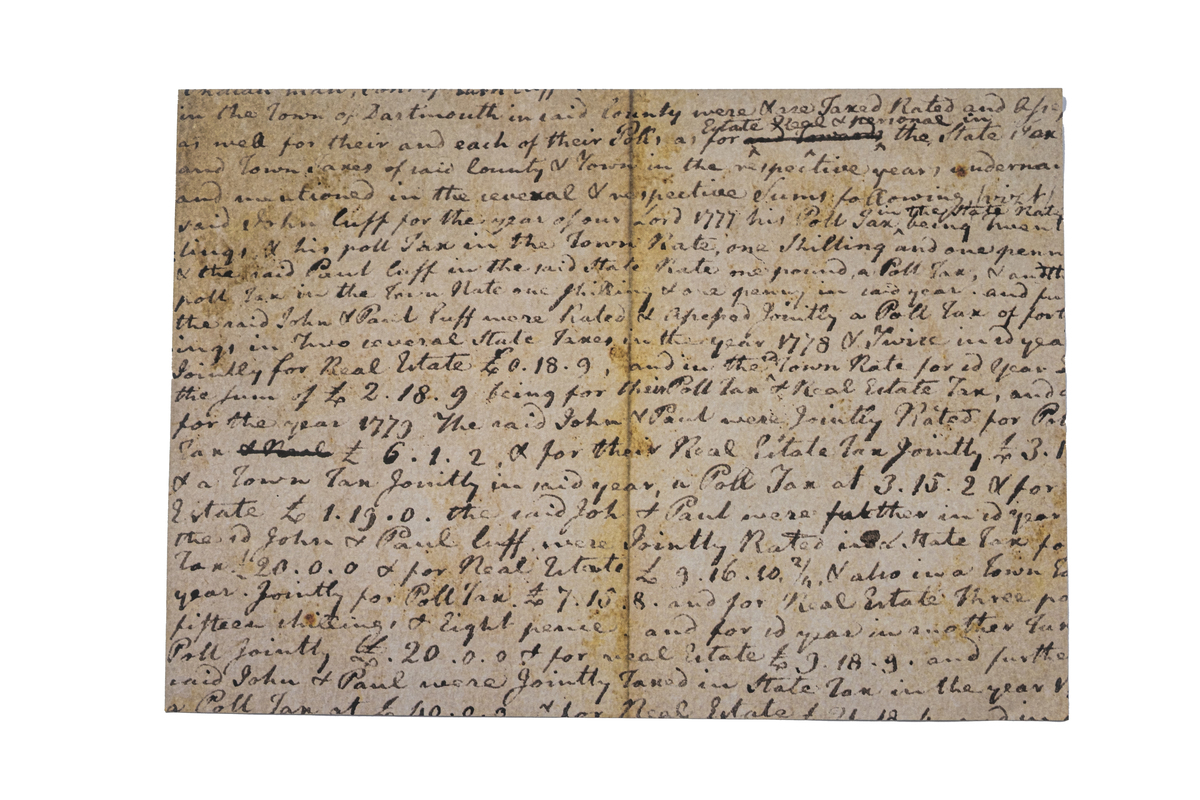 Indian man,
in the Town of Dartmouth in said County were & are Taxed Rated and
Estate Real & Personal in
as well for their and each of their Polls as for and towards the State Tax
and Town Taxes of said County & Town in the respective years undernam
and mentioned in the several & respective sums following (vizt)
in the State Rate
said John Cuff for the year of our Lord 1777 his Poll Tax being twent
lings, & his poll Tax in the Town Rate, one Shilling and one penn
& the said Paul Cuff in the said State Rate one pound, a Poll Tax, &
poll Tax in the Town Rate one shilling & one penny in said year. and fu
the said John & Paul Cuff were Rated & Assessed Jointly a Poll Tax of fort
ings in Two several State Taxes in the year 1778 & Twice in sd yea
Jointly for Real Estate £0.18.9, and in the Town Rate for sd Year
the sum of £2.18.9 being for their Poll Tax & Real Estate Tax, and
for the year 1779 The said John & Paul were Jointly Rated for Pol
Tax & Real £6.1.2, & for their Real Estate Tax Jointly £3.1
& a Town Tax Jointly in said year, a Poll Tax at 3.15.2 & for
Estate £1.19.0. the said Joh & Paul were further in sd year
the sd John & Paul Cuff were Jointly Rated in State Tax fo
Tax £20.0.0 & for Real Estate £9.16.10. & also in a Town
year. Jointly for Poll Tax £7.15.8. and for Real Estate Three po
fifteen shillings & Eight pence and for sd year in another
Poll Jointly £.20.0.0 & for real Estate £9.18.9. and furthe
said John & Paul were Jointly Taxed in State Tax in the year
a Poll Tax at £40.0.0 & for Real Estate £